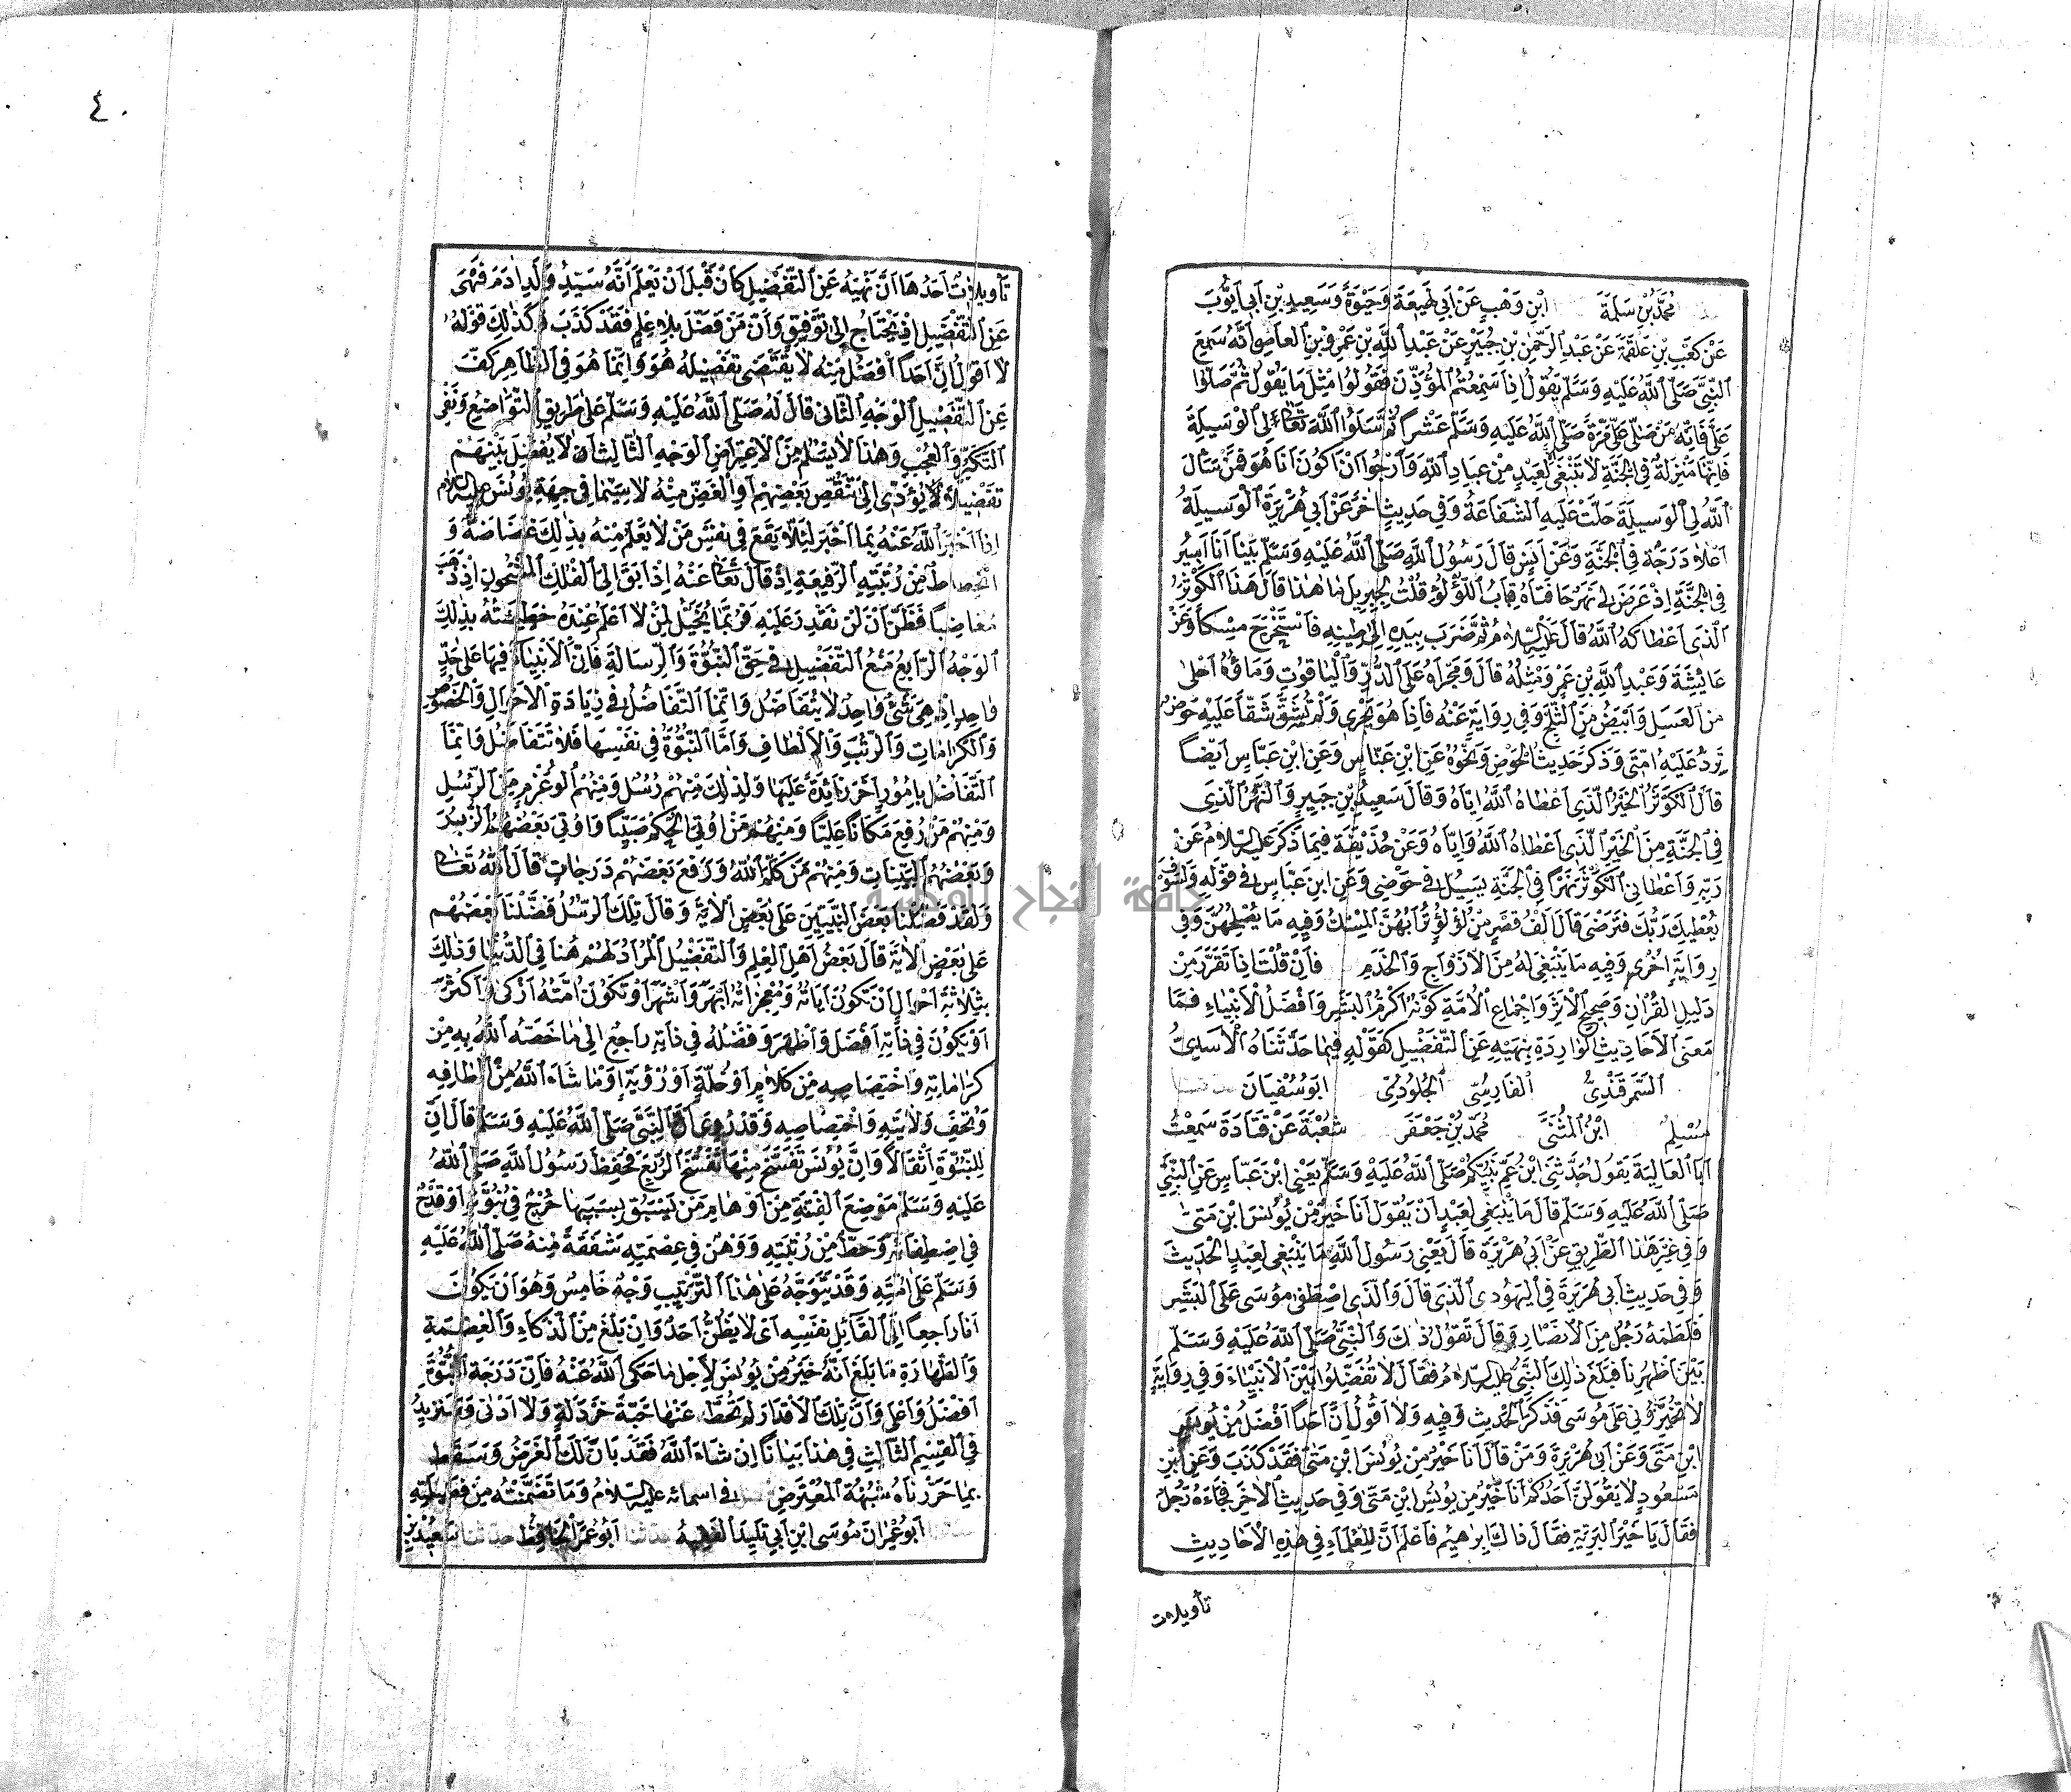 محمد بن سلمة ابن وهب عن ابى لهيعة وحيوة وسعيد بن ابى ايوب
عن كعب بن علقمة عن عبد الرحمن بن جبير عن عبد الله بن عمرو بن العاصى انه سمع
النبى صلى الله عليه وسلم يقول اذا سمعتم المؤذن فقولوا مثل ما يقول ثم صلوا
على فانه من صلى على مرة صلى الله عليه وسلم عشرا ثم سلوا الله تعالى لى الوسيلة
فانها منزلة فى الجنة لا تنبغى لعبد من عباد الله وارجوا ان اكون انا هو فمن سأل
الله لى الوسيلة حلت عليه الشفاعة وفى حديث اخر عن ابى هريرة الوسيلة
اعلا درجة فى الجنة وعن انس قال رسول الله صلى الله عليه وسلم بينا انا اسير
فى الجنة اذ عرض لى نهر حافتاه قباب اللؤلؤ قلت لجبريل ما هذا قال هذا الكوثر
الذى اعطاكه الله قال عليه السلام ثم ضرب بيده الى طينه فاستخرج مسكا وعن
عائشة وعبد الله بن عمرو مثله قال ومجراه على الدر والياقوت وماؤه احلى
من العسل وابيض من الثلج وفى رواية عنه فاذا هو يجرى ولم تشق شقا عليه حوض
ترد عليه امتى وذكر حديث الحوض ونحوه عن ابن عباس وعن ابن عباس ايضا
قال الكوثر الخير الذى اعطاه الله اياه وقال سعيد بن جبير والنهر الذى
فى الجنة من الخير الذى اعطاه الله واياه وعن حذيفة فيما ذكر عليه السلام عن
ربه واعطانى الكوثر نهرا فى الجنة يسيل فى حوضى وعن ابن عباس فى قوله ولسوف
يعطيك ربك فترضى قال الف قصر من لؤلؤ ترابهن المسك وفيه ما يصلحهن وفى
رواية اخرى وفيه ما ينبغى له من الازواج والخدم فان قلت اذا تقرر من
دليل القران وصحيح الاثر واجماع الامة كونه اكرم البشر وافضل الانبياء فما
معنى الاحاديث الواردة بنهيه عن التفضيل كقوله فيما حدثناه الاسدى
السمرقندى الفارسى الجلودى ابو سفيان
مسلم ابن المثنى محمد بن جعفر شعبة عن قتادة سمعت
ابا العالية يقول حدثنى ابن عم نبيكم صلى الله عليه وسلم يعنى ابن عباس عن النبى
صلى الله عليه وسلم قال ما ينبغى لعبد ان يقول انا خير من يونس ابن متى
وفى غير هذا الطريق عن ابى هريرة قال يعنى رسول الله ما ينبغى لعبد الحديث
وفى حديث ابى هريرة فى اليهودى الذى قال والذى اصطفى موسى على البشر
فلطمه رجل من الانصار وقال تقول ذلك والنبى صلى الله عليه وسلم
بين اظهرنا فبلغ ذلك النبى عليه السلام فقال لا تفضلوا بين الانبياء وفى رواية
لا تخيرونى على موسى فذكر الحديث وفيه ولا اقول ان احدا افضل من يونس
ابن متى وعن ابى هريرة ومن قال انا خير من يونس ابن متى فقد كذب وعن ابن
مسعود لا يقولن احدكم انا خير من يونس ابن متى وفى حديث الاخر فجاءه رجل
فقال يا خير البرية فقال ذاك ابرهيم فاعلم ان للعلماء فى هذه الاحاديث
تأويلات
٤٠
تأويلات احدها ان نهيه عن التفضيل كان قبل ان يعلم انه سيد ولد ادم فنهى
عن التفضيل اذ يحتاج الى توفيق وان من فضل بلا علم فقد كذب وكذلك قوله
لا اقول ان احدا افضل منه لا يقتضى تفضيله هو وانما هو فى الظاهر كف
عن التفضيل الوجه الثانى قال له صلى الله عليه وسلم على طريق التواضع ونفى
التكبر والعجب وهذا لا يسلم من الاعتراض الوجه الثالث ان لا يفضل بينهم
تفضيلا يؤدى الى تنقص بعضهم او الغض منه لا سيما فى جهة يونس عليه السلام
اذا اخبر الله عنه بما اخبر لئلا يقع فى نفس من لا يعلم منه بذلك غضاضة و
انحطاط من رتبته الرفيعة اذ قال تعالى عنه اذ ابق الى الفلك المشحون اذ ذهب
مغاضبا فظن ان لن نقدر عليه فربما يخيل لمن لا اعلم عنده خطيئته بذلك
الوجه الرابع منع التفضيل فى حق النبوة والرسالة فان الانبياء فيها على حد
واحد اذ هى شئ واحد لا يتفاضل وانما التفاضل فى زيادة الاحوال والخصوص
والكرامات والرتب والالطاف واما النبوة فى نفسها فلا تتفاضل وانما
التفاضل بامور اخر زائدة عليها ولذلك منهم رسل ومنهم اولو عزم من الرسل
ومنهم من رفع مكانا عليا ومنهم من اوتى الحكم صبيا واوتى بعضهم الزبر
وبعضهم البينات ومنهم من كلم الله ورفع بعضهم درجات قال الله تعالى
ولقد فضلنا بعض النبيين على بعض الاية وقال تلك الرسل فضلنا بعضهم
على بعض الاية قال بعض اهل العلم والتفضيل المراد لهم هنا فى الدنيا وذلك
بثلاثة احوال ان تكون اياته ومعجزاته ابهر واشهر او تكون امته ازكى واكثر
او يكون فى ذاته افضل واظهر وفضله فى ذاته راجع الى ما خصه الله به من
كراماته واختصاصه من كلام او خلة او رؤية او ما شاء الله من الطافه
وتحف ولايته واختصاصه وقد روى ان النبى صلى الله عليه وسلم قال ان
للنبوة اثقالا وان يونس تفسخ منها تفسخ الربع فحفظ رسول الله صلى الله
عليه وسلم موضع الفتنة من اوهام من يسبق بسببها جرح فى نبوته او قدح
فى اصطفائه وحط من رتبته ووهن فى عصمته شفقة منه صلى الله عليه
وسلم على امته وقد يتوجه على هذا الترتيب وجه خامس وهو ان تكون
انا راجعا الى القائل نفسه اى لا يظن احد وان بلغ من الذكاء والعصمة
والطهارة ما بلغ انه خير من يونس لاجل ما حكى الله عنه فان درجة النبوة
افضل واعلى وان تلك الاقدار لم تحطه عنها حبة خردلة ولا ادنى وسنزيد
فى القسم الثالث فى هذا بيانا ان شاء الله فقد بان لك الغرض وسقط
بما حررناه شبهة المعترض فى اسمائه عليه السلام وما تضمنته من فضيلته
ابو عمران موسى ابن ابى تليد الفقيه حدثنا ابو عمر الحافظ حدثنا سعيد بن
جامعة النجاح الوطنية